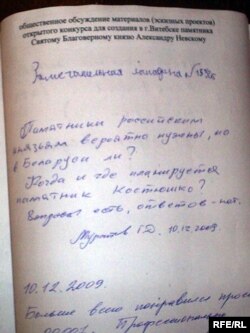 общественное обсуждение материалов (эскизных проектов)
открытого конкурса для создания в г.Витебске памятника
Святому Благоверному князю Александру Невскому
Замечательная
Памятники российским
князьям вероятно нужны, но
в Беларуси ли?
Когда и где планируется
памятник Костюшко?
Вопросы есть, ответов - нет.
10.12.2009.
10.12.2009.
Больше всего понравился
RFE/RL